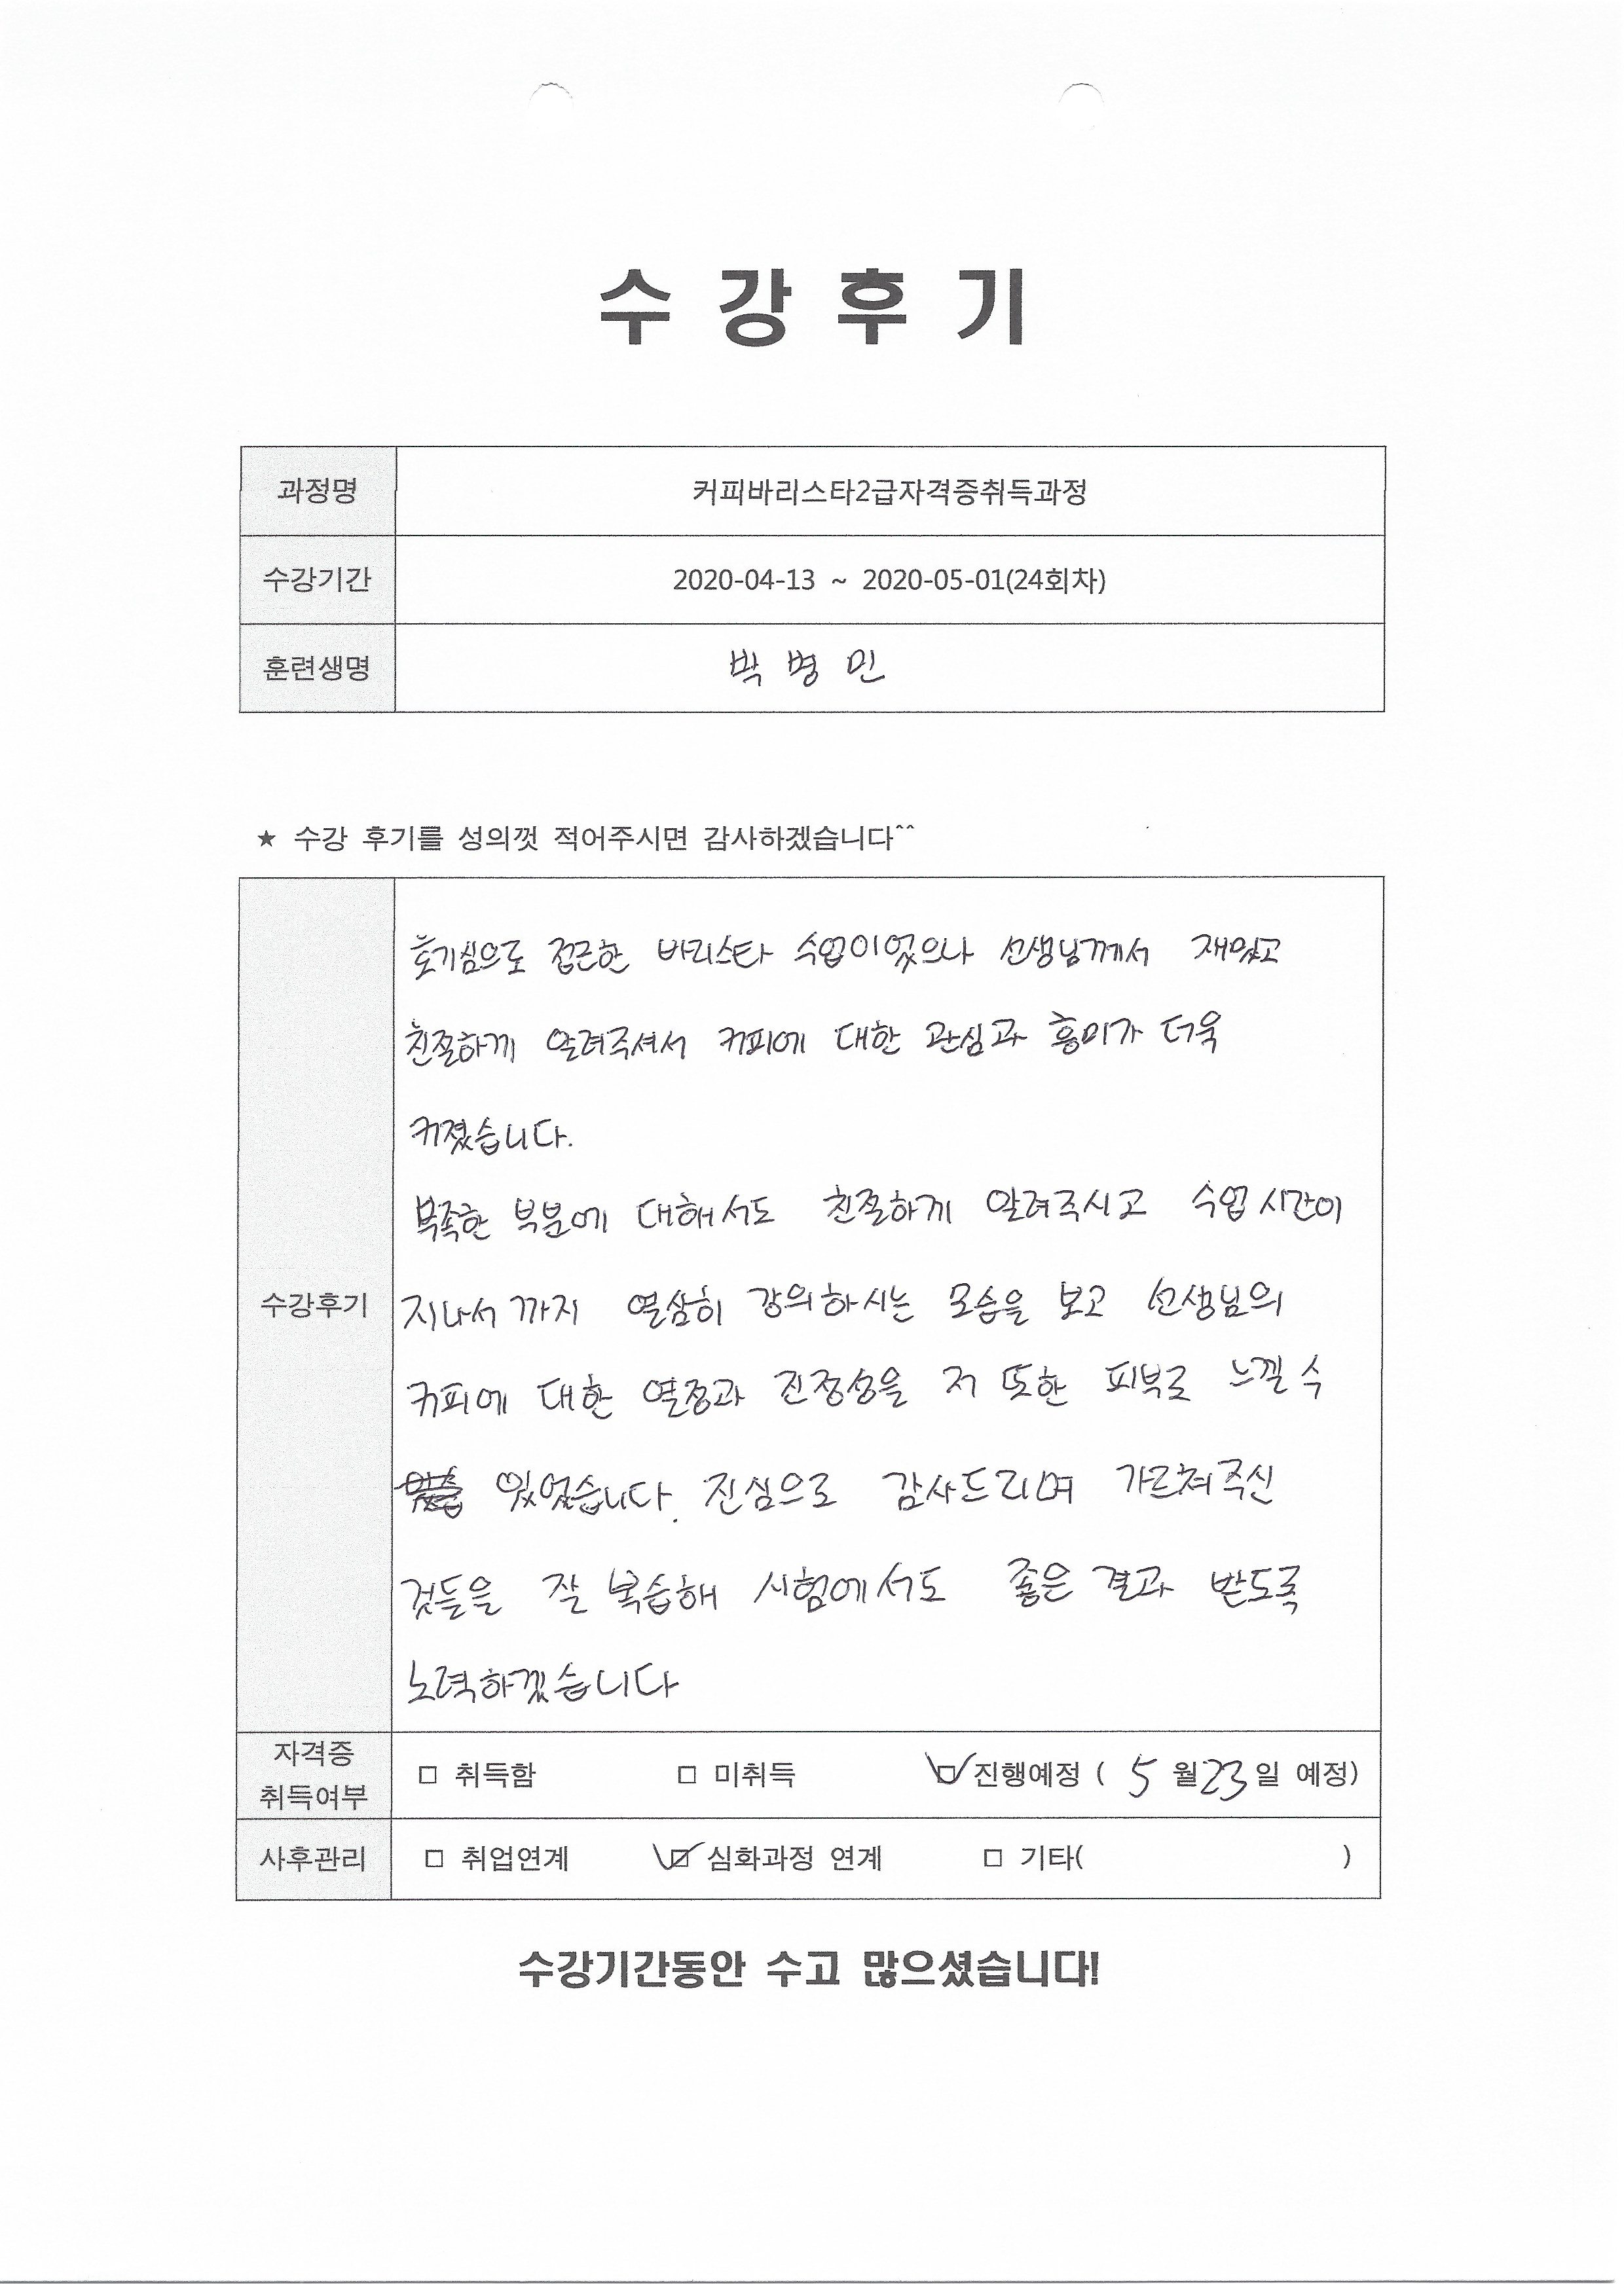 수 강 후 기
과정명 커피바리스타2급자격증취득과정
수강기간 2020-04-13 ~ 2020-05-01(24회차)
훈련생명 박 병 민
★ 수강 후기를 성의껏 적어주시면 감사하겠습니다^^
호기심으로 접근한 바리스타 수업이었으나 선생님께서 재밌고
친절하게 알려주셔서 커피에 대한 관심과 흥미가 더욱
커졌습니다.
부족한 부분에 대해서도 친절하게 알려주시고 수업 시간이
수강후기 지나서 까지 열심히 강의하시는 모습을 보고 선생님의
커피에 대한 열정과 진정성을 저 또한 피부로 느낄 수
있었습니다. 진심으로 감사드리며 가르쳐주신
것들을 잘 복습해 시험에서도 좋은 결과 받도록
노력하겠습니다
자격증
취득여부 □ 취득함 □ 미취득 ☑ 진행예정 ( 5 월 23 일 예정)
사후관리 □ 취업연계 ☑ 심화과정 연계 □ 기타( )
수강기간동안 수고 많으셨습니다!